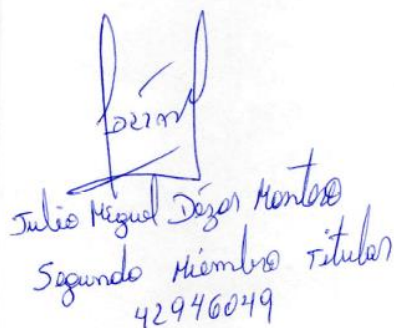 Julio Miguel Dózar Montero
Segundo Miembro Titular
42946049